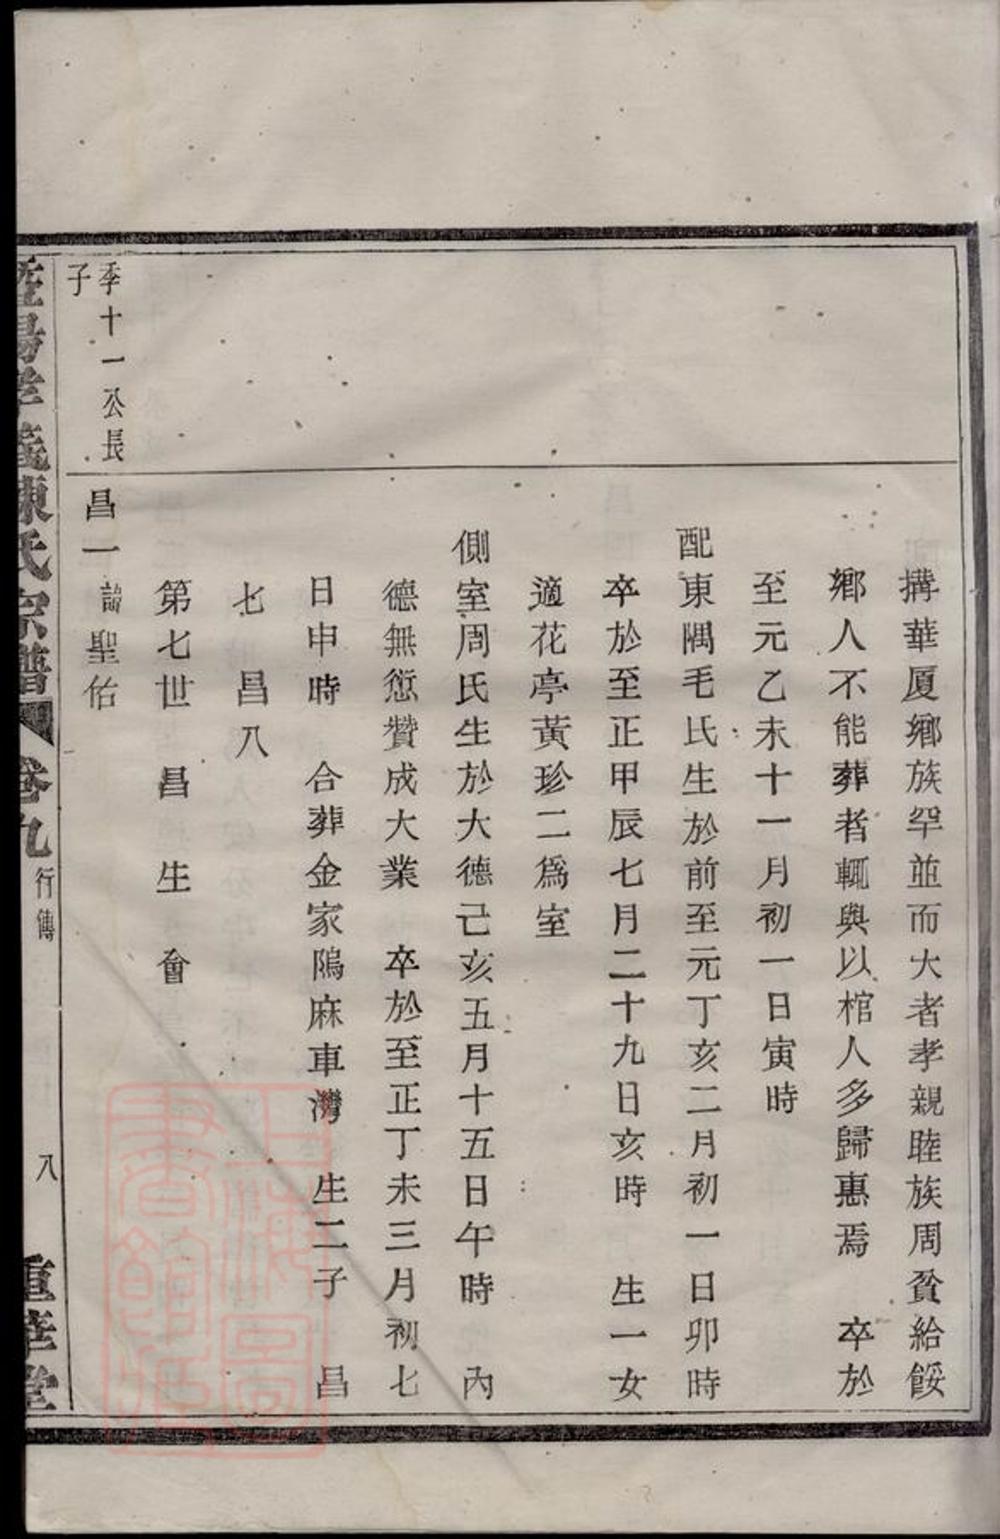 搆華厦鄉族罕並而大者孝親睦族周貧給餒
鄉人不能葬者輒與以棺人多歸惠焉 卒於
至元乙未十一月初一日寅時
配東隅毛氏生於前至元丁亥二月初一日卯時
卒於至正甲辰七月二十九日亥時 生一女
適花亭黃珍二爲室
側室周氏生於大德己亥五月十五日午時 內
德無愆贊成大業 卒於至正丁未三月初七
日申時 合葬金家隝麻車灣 生二子 昌
七 昌八
第七世 昌 生 會
季十一公長
子
昌一 諱聖佑
暨陽孝義陳氏宗譜 卷九 行傳 八 重華堂
上海圖書館藏